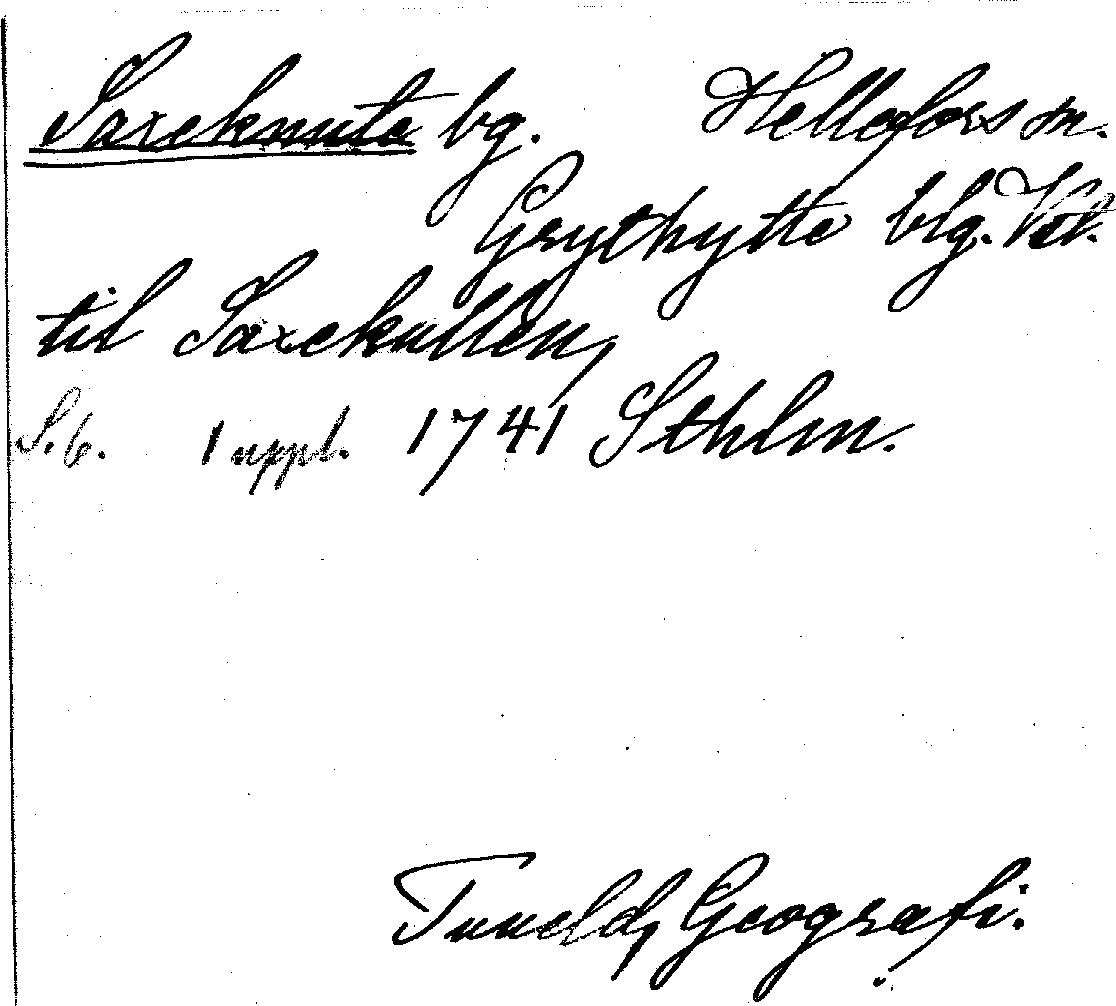 Saxeknuta bg. Hellefors sn.
Grythytte blg. Vstl.
til Saxekullen,
S. 6. 1 uppl. 1741 Sthlm.
Tuneld, Geografi.